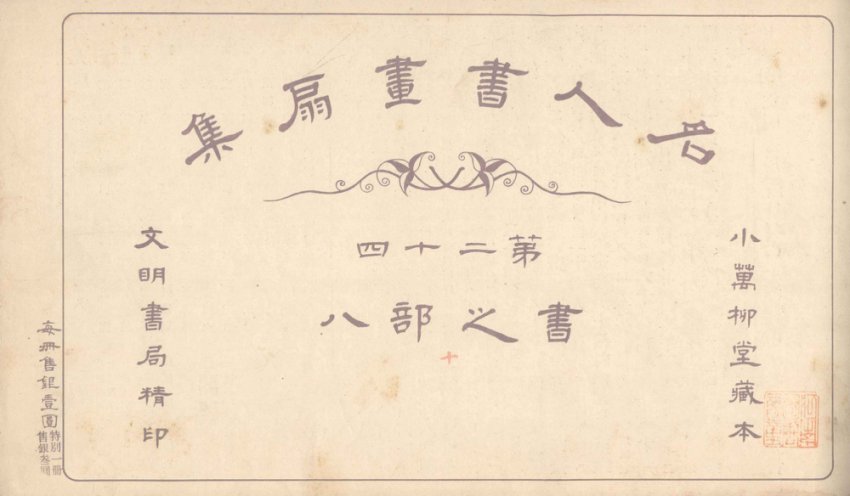 名人書畫扇集
第二十四
書之部八
小萬柳堂藏本
文明書局精印
每冊售銀壹圓
特別一冊
售銀叁圓
十